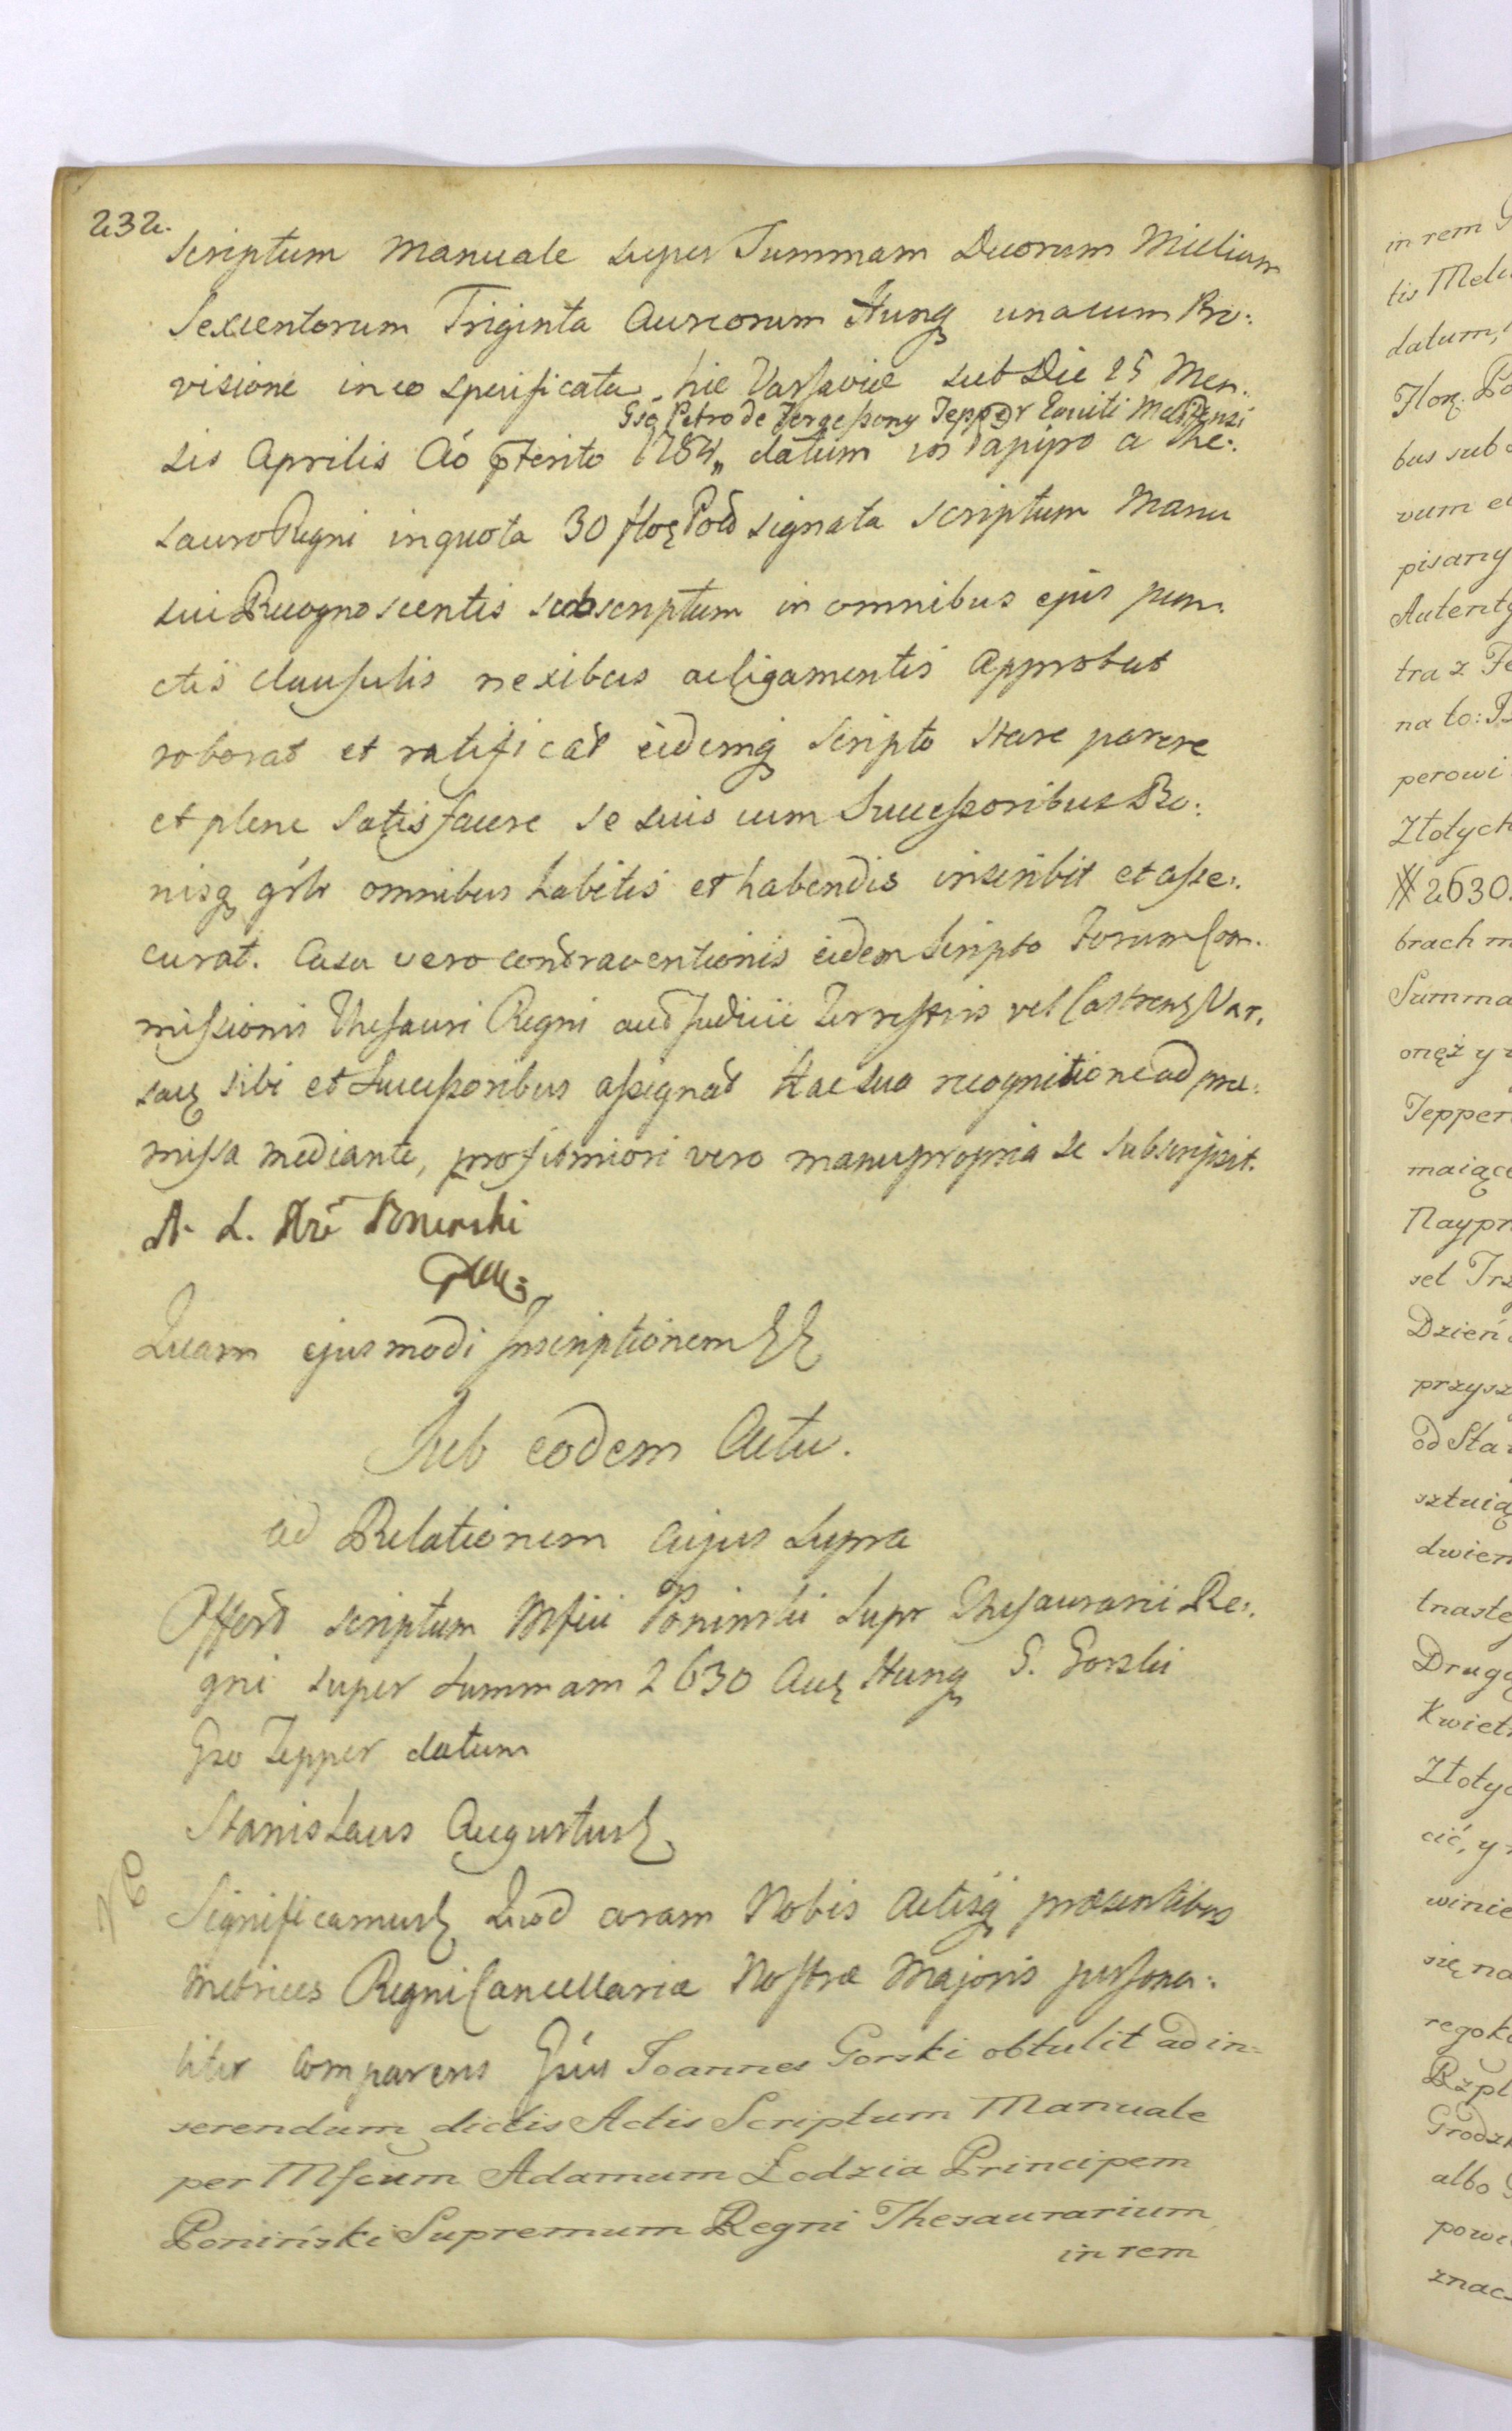 232.
Scriptum Manuale super Summam Duorum Millium
Sexcentorum Triginta Aureorum Hung unacum Pro:
visione in eo specificata, hic Varsaviæ sub Die 25 Men:
Gso Petro de Fergessony Tepper Equiti Meltensi
sis Aprilis Ao pterito 1784,, datum in Papiro a The:
sauro Regni in quota 30 flor Pol signata scriptum Manu
sui Recognoscentis subscriptum in omnibus ejus pun:
ctis clausulis nexibus acligamentis approbat
roborat et ratificat eidemq Scripto stare parere
et plene Satisfacere se suis cum Successoribus Bo:
nisq gnlr omnibus habitis et habendis inscribit et asse:
curat. Casu vero contraventionis eidem Scripto Forum Com:
missionis Thesauri Regni aut Judicii Terrestris vel Castrens Var:
sav sibi et Successoribus assignat Hac sua recognitione ad præ:
missa mediante, pro firmiori vero manu propria se Subscripsit.
A. L. Xże Poninski
Quam ejusmodi Inscriptionem
Sub eodem Actu.
ad Relationem cujus supra
Offert scriptum Mfici Poninski Supr Thesaurarii Re:
gni super Summam 2630 Aur Hung G. Gorski
Gso Tepper datum
Stanislaus Augustus
Significamus Quod coram Nobis Actisq præsentibus
Metrices Regni Cancellariæ Nostræ Majoris persona:
liter Comparens Gsus Joannes Gorski obtulit ad in:
serendum dictis Actis Scriptum Manuale
per Mficum Adamum Łodzia Principem
Poniński Supremum Regni Thesaurarium
in rem
in rem
tis
datum,
Flor. Po
bus sub
vum et
pisany
tra z Fe
na to:
perowi
Złotych
2630.
brach m
Summa
onęż y
Tepper
maiące
Naypr
set Trz
Dzień
przysz
od Sta
sztuią
dwien
tnaste
Drugą
Kwiet
Złotyc
cić, y
winie
się na
rego
Rzpl
Grodz
albo
powi
znac